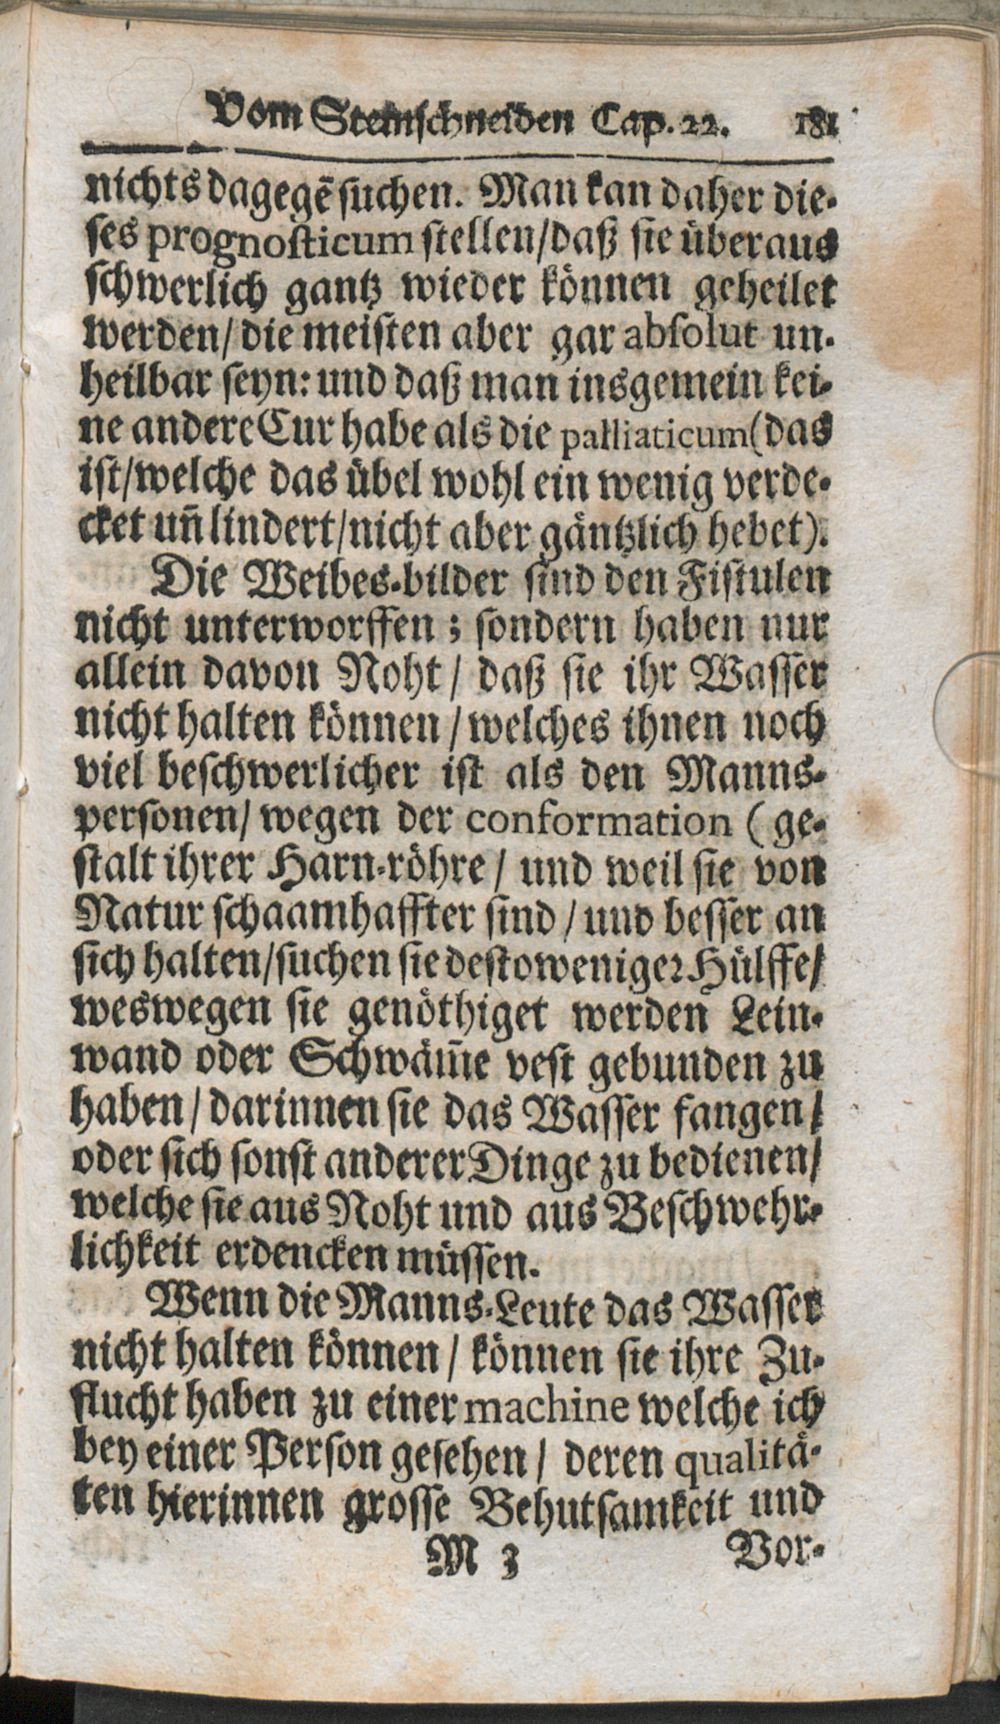 Vom Steinschneiden Cap. 22. 181
nichts dagegē suchen. Man kan daher die-
ses prognosticum stellen/daß sie überaus
schwerlich gantz wieder können geheilet
werden/die meisten aber gar absolut un-
heilbar seyn: und daß man insgemein kei-
ne andere Cur habe als die palliaticum(das
ist/welche das übel wohl ein wenig verde-
cket uñ lindert/nicht aber gäntzlich hebet).
Die Weibes-bilder sind den Fistulen
nicht unterworffen; sondern haben nur
allein davon Noht/ daß sie ihr Wasser
nicht halten können/welches ihnen noch
viel beschwerlicher ist als den Manns-
personen/ wegen der conformation (ge-
stalt ihrer Harn-röhre/ und weil sie von
Natur schaamhaffter sind/und besser an
sich halten/suchen sie destoweniger Hülffe/
weswegen sie genöthiget werden Lein-
wand oder Schwäm̄e vest gebunden zu
haben/darinnen sie das Wasser fangen/
oder sich sonst anderer Dinge zu bedienen/
welche sie aus Noht und aus Beschwehr-
lichkeit erdencken müssen.
Wenn die Manns-Leute das Wasser
nicht halten können/ können sie ihre Zu-
flucht haben zu einer machine welche ich
bey einer Person gesehen/ deren qualitä-
ten hierinnen grosse Behutsamkeit und
M 3 Vor-